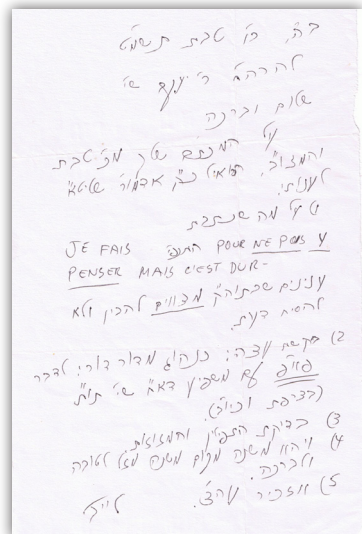 ב"ה, כ' טבת תשמ"ט
שלום וברכה
על המכתב שלך מכ' טבת
והמצו"ב, הואיל כ"ק אדמו"ר שליט"א
לענות:
1) על מה שכתבת
JE FAIS התפי' POUR NE PAS Y
PENSER MAIS C'EST DUR-
ענינים שבתוה"ק מצווים להבין ולא
להסיח דעת.
2) בקשת עצה: כנהוג מדור דור: לדבר
פא"פ עם משפיע דא"ח שי' תות"ל
(בצרפת וכיו"ב).
3) בדיקת התפילין והמזוזות.
4) ויהא משנה מקום משנה מזל לטובה
ולברכה.
5) אזכיר עה"צ.